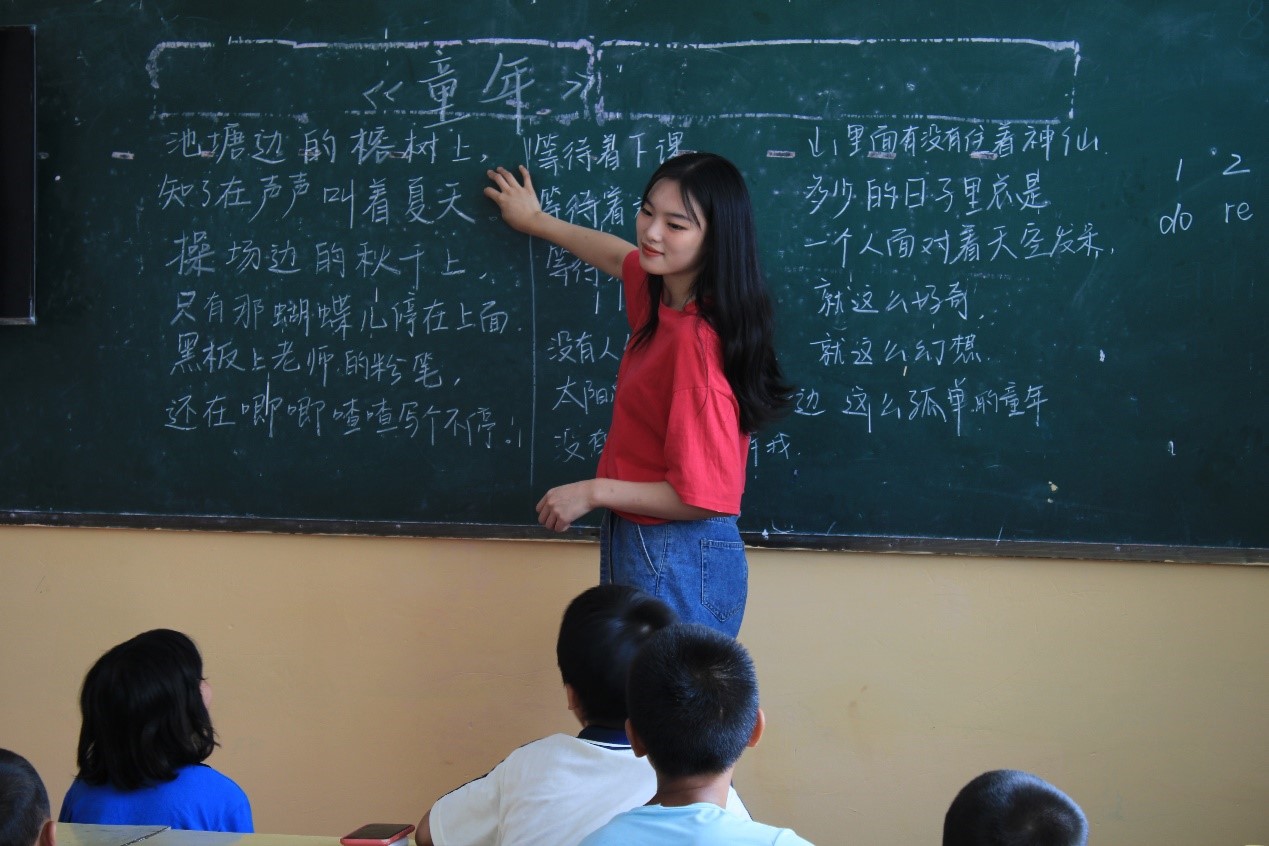 <<童年>>
池塘边的榕树上,
知了在声声叫着夏天
操场边的秋千上,
只有那蝴蝶儿停在上面.
黑板上老师的粉笔,
还在唧唧喳喳写个不停.
等待着下课
等待着
等待
没有人
太阳
没有
我.
山里面有没有住着神仙.
多少的日子里总是
一个人面对着天空发呆,
就这么好奇,
就这么幻想.
边 这么孤单的童年
1 2
do re